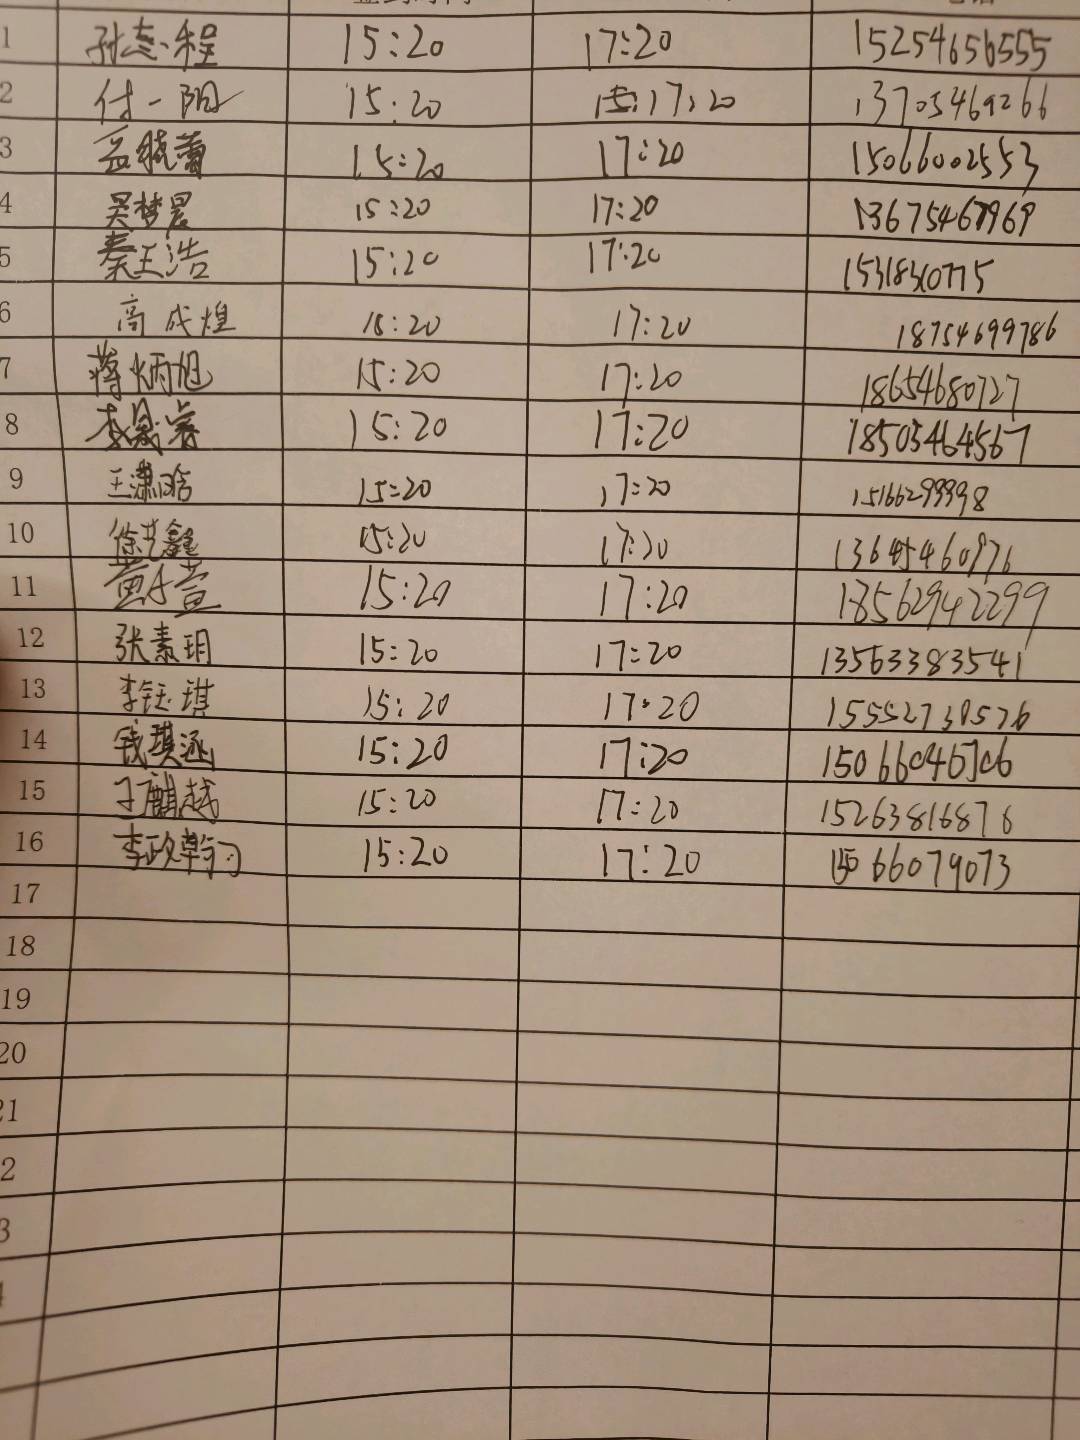 1 孙志程 15:20 17:20 15254656555
2 付一阳 15:20 17:20 13705469266
3 孟晓蕾 15:20 17:20 15066002553
4 吴梦晨 15:20 17:20 13675467969
5 秦王浩 15:20 17:20 15318310775
6 高成煌 15:20 17:20 18754699786
7 蒋炳旭 15:20 17:20 18654680727
8 15:20 17:20 18503464567
9 王潇晗 15:20 17:20 15166299998
10 徐艺鑫 15:20 17:20 13645460976
11 15:20 17:20 18562942299
12 张素玥 15:20 17:20 13563383541
13 李钰琪 15:20 17:20 15552730576
14 钱琪涵 15:20 17:20
15 王麒越 15:20 17:20 15263816876
16 李政翰 15:20 17:20 15066079073
17
18
19
20
21
2
3